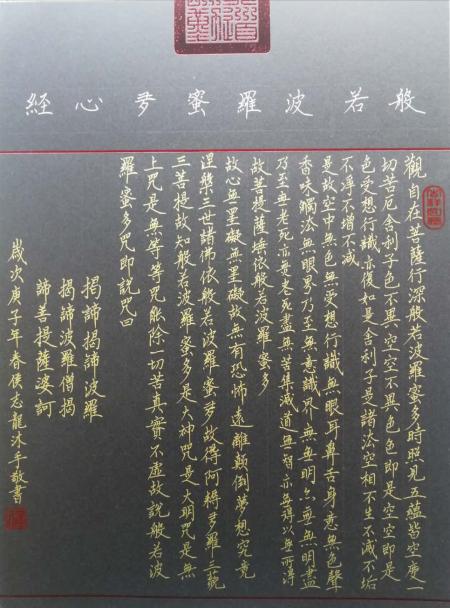 般若波羅蜜多心經
觀自在菩薩行深般若波羅蜜多時照見五蘊皆空度一
切苦厄舍利子色不異空空不異色色即是空空即是
色受想行識亦復如是舍利子是諸法空相不生不滅不垢
不淨不增不減
是故空中無色無受想行識無眼耳鼻舌身意無色聲
香味觸法無眼界乃至無意識界無無明亦無無明盡
乃至無老死亦無老死盡無苦集滅道無智亦無得以無所得
故菩提薩埵依般若波羅蜜多
故心無罣礙無罣礙故無有恐怖遠離顛倒夢想究竟
涅槃三世諸佛依般若波羅蜜多故得阿耨多羅三藐
三菩提故知般若波羅蜜多是大神咒是大明咒是無
上咒是無等等咒能除一切苦真實不虛故說般若波
羅蜜多咒即說咒曰
揭諦揭諦波羅
揭諦波羅僧揭
諦菩提薩婆訶
歲次庚子年春侯志龍沐手敬書